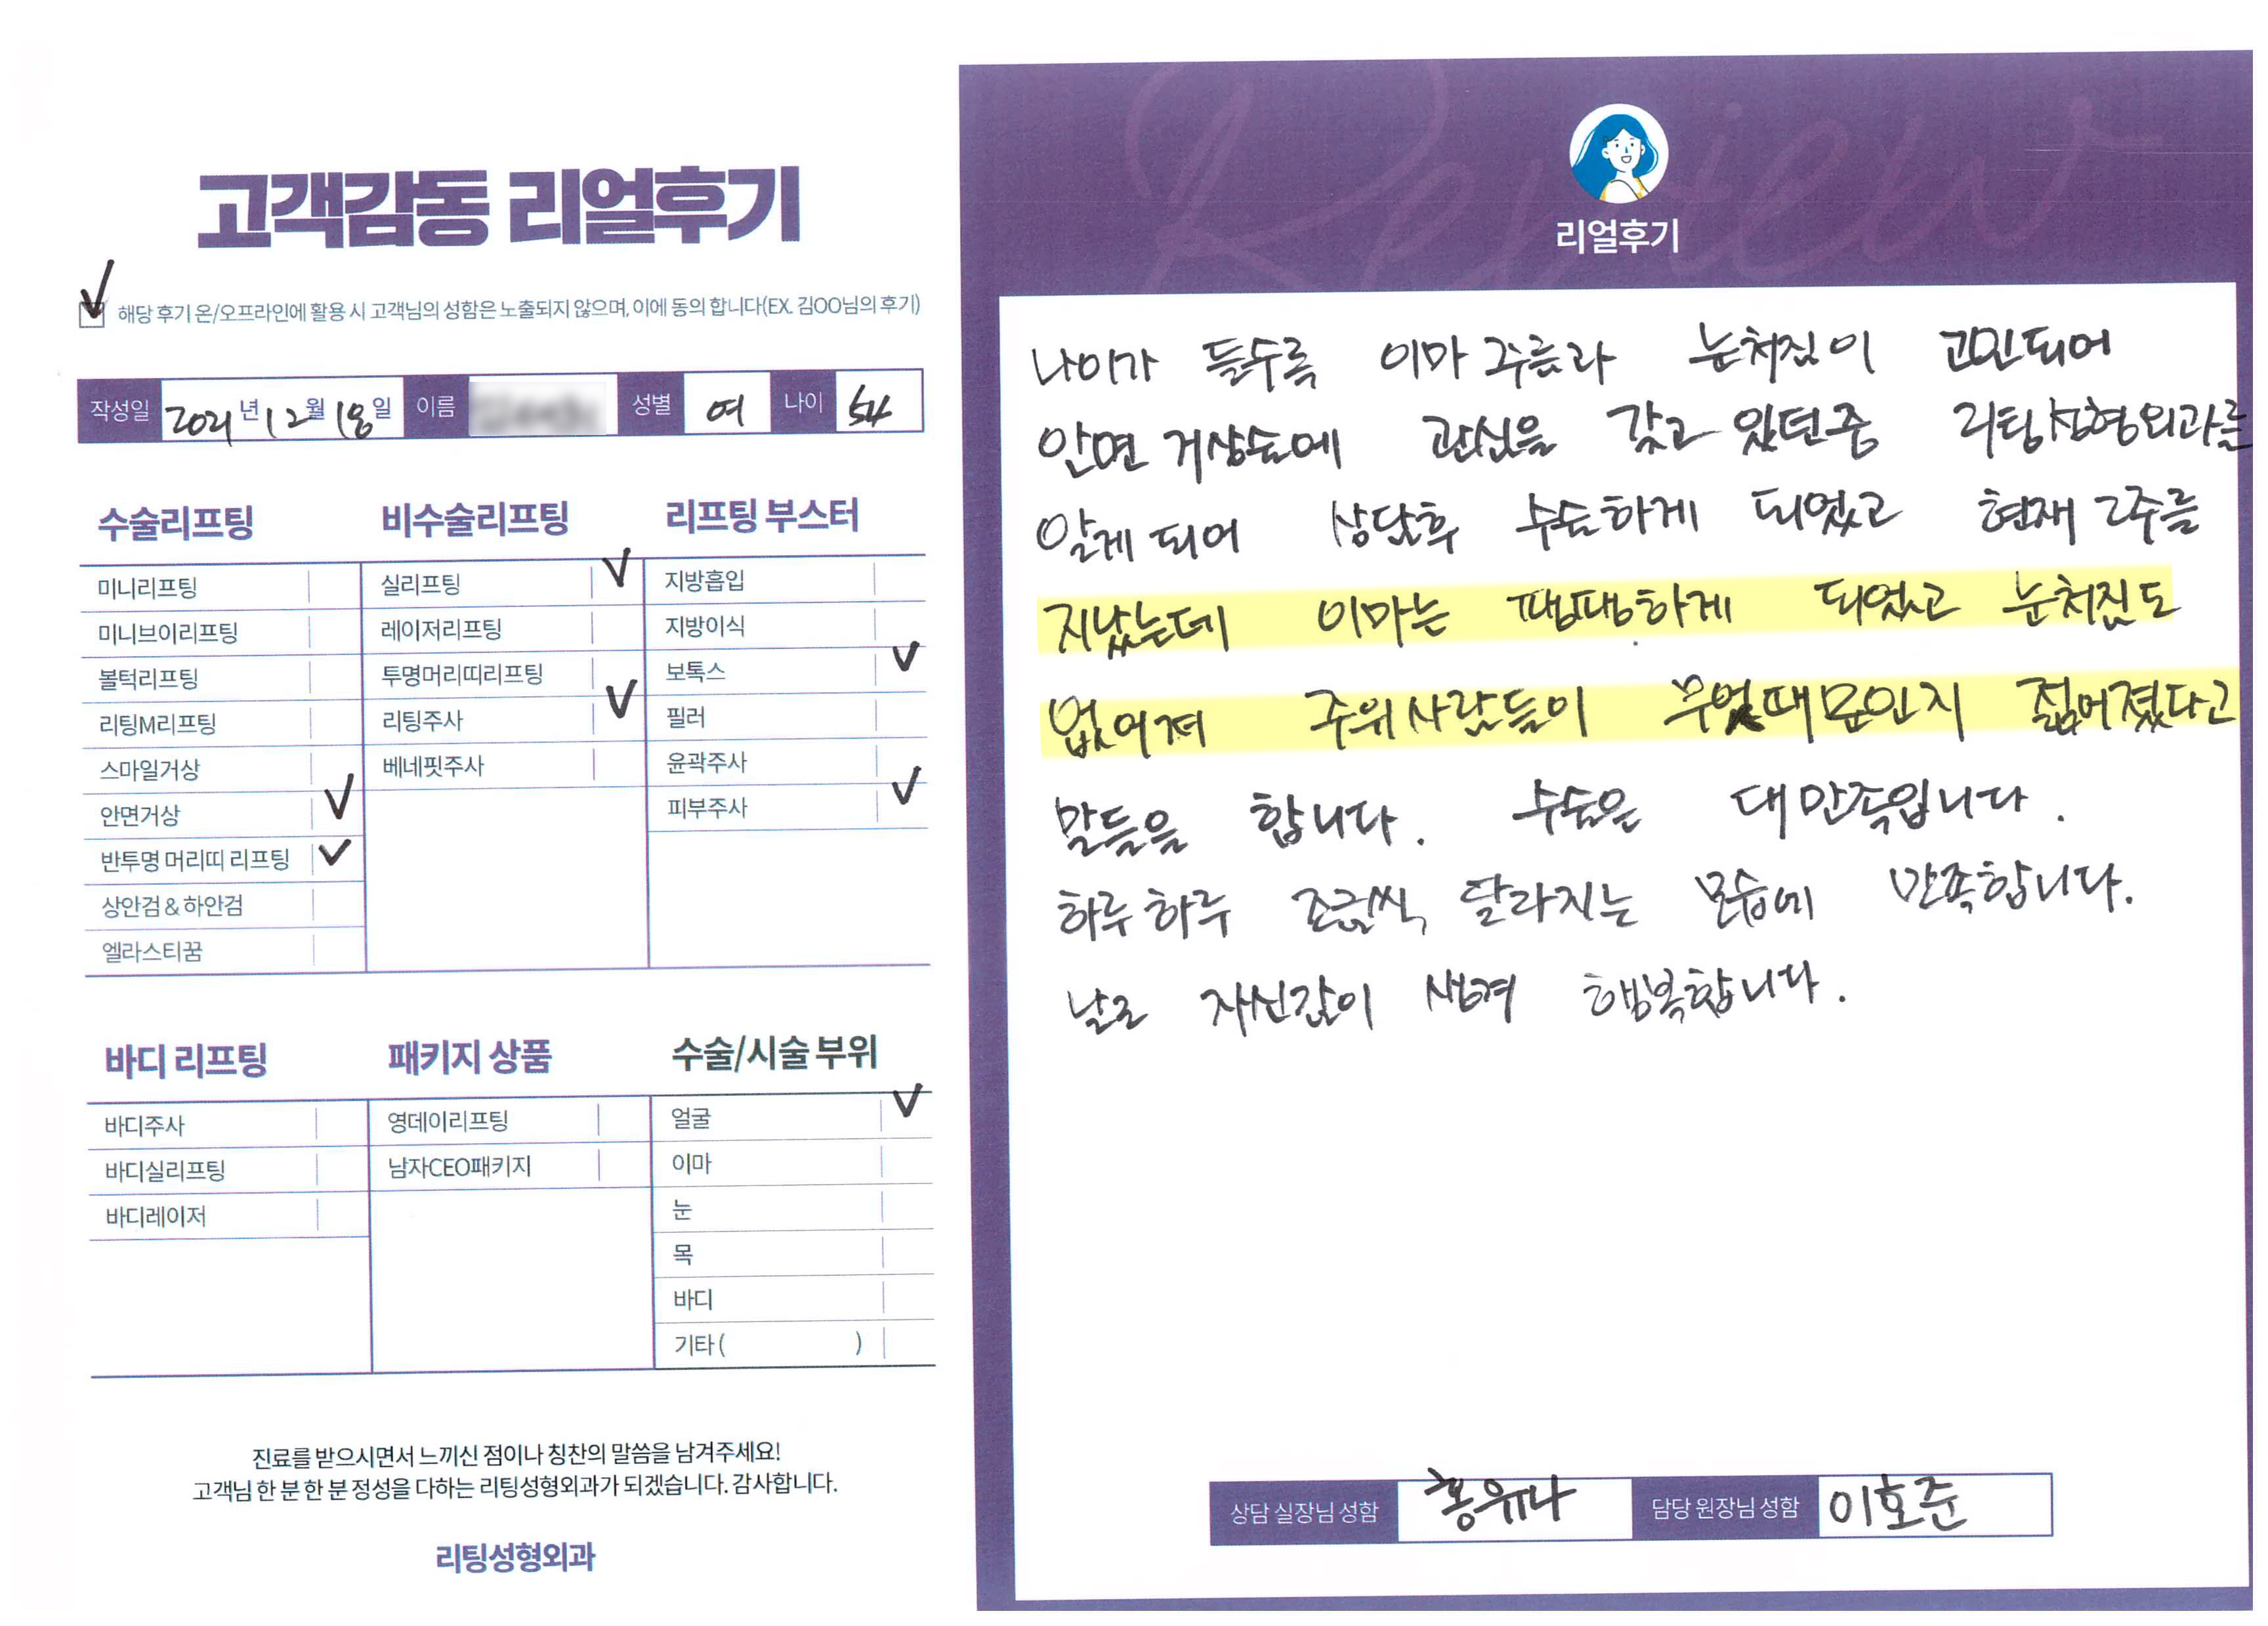 고객감동 리얼후기
✓ 해당 후기 온/오프라인에 활용 시 고객님의 성함은 노출되지 않으며, 이에 동의 합니다(EX. 김OO님의 후기)
작성일 2021년 12월 18일 이름 성별 여 나이 54
수술리프팅
미니리프팅
미니브이리프팅
볼턱리프팅
리팅M리프팅
스마일거상
안면거상 ✓
반투명 머리띠 리프팅 ✓
상안검 & 하안검
엘라스티꿈
비수술리프팅
실리프팅 ✓
레이저리프팅
투명머리띠리프팅
리팅주사 ✓
베네핏주사
리프팅 부스터
지방흡입
지방이식
보톡스 ✓
필러
윤곽주사
피부주사 ✓
바디 리프팅
바디주사
바디실리프팅
바디레이저
패키지 상품
영데이리프팅
남자CEO패키지
수술/시술 부위
얼굴 ✓
이마
눈
목
바디
기타 ( )
진료를 받으시면서 느끼신 점이나 칭찬의 말씀을 남겨주세요!
고객님 한 분 한 분 정성을 다하는 리팅성형외과가 되겠습니다. 감사합니다.
리팅성형외과
Review
리얼후기
나이가 들수록 이마 주름과 눈처짐이 고민되어
안면 거상술에 관심을 갖고 있던중 리팅성형외과를
알게 되어 상담후 수술하게 되었고 현재 2주를
지났는데 이마는 땡땡하게 되었고 눈처짐도
없어져 주위사람들이 무엇때문인지 젊어졌다고
말들을 합니다. 수술은 대만족입니다.
하루하루 조금씩 달라지는 모습에 만족합니다.
날로 자신감이 생겨 행복합니다.
상담 실장님 성함 홍유나 담당 원장님 성함 이호준